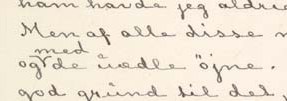 ham havde jeg aldrig
Men af alle disse
med
og de uædle öjne.
god grund til det,